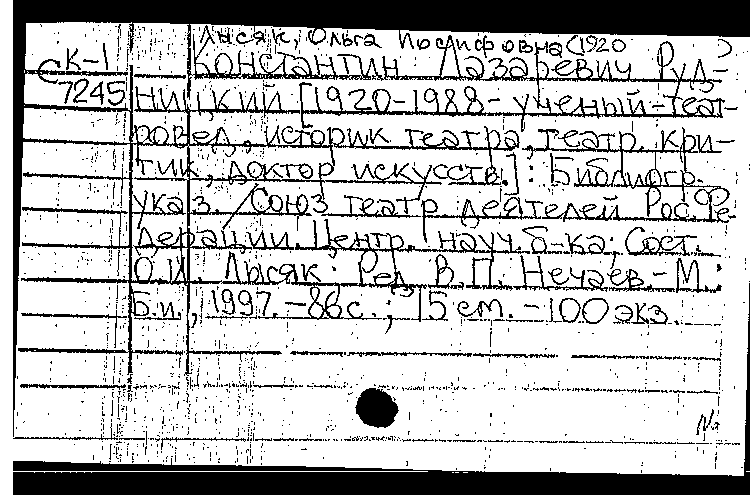 Лысяк, Ольга Иосифовна (1920 )
С К-1
7245
Константин Лазаревич Руд-
ницкий [1920-1988 - ученый-теат-
ровед, историк театра, театр. кри-
тик, доктор искусств.] : Библиогр.
указ. / Союз театр. деятелей Рос. Фе-
дерации. Центр. науч. б-ка; Сост.
О.И. Лысяк; Ред. В.П. Нечаев. - М.:
Б.и., 1997. - 86 с.; 15 см. - 100 экз.